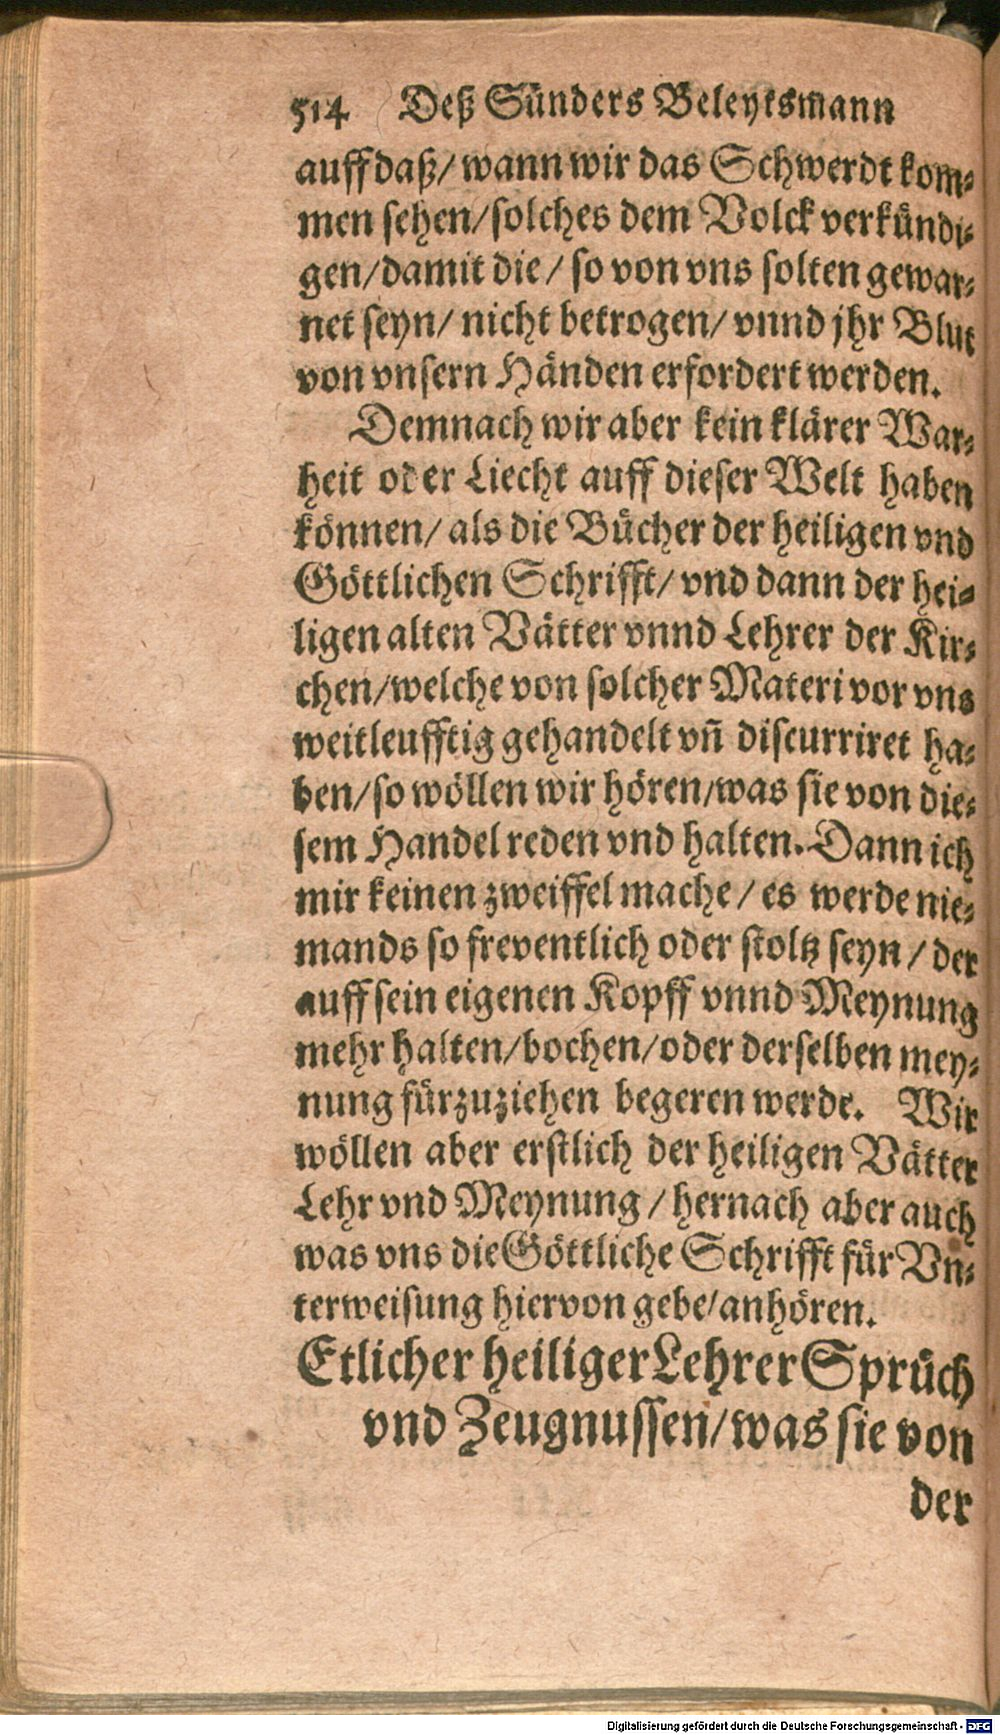 514 Deß Sünders Beleytsmann
auff daß/ wann wir das Schwerdt kom⸗
men sehen/solches dem Volck verkündi⸗
gen/damit die/ so von vns solten gewar⸗
net seyn/ nicht betrogen/ vnnd jhr Blut
von vnsern Händen erfordert werden.
Demnach wir aber kein klärer War⸗
heit oder Liecht auff dieser Welt haben
können/ als die Bücher der heiligen vnd
Göttlichen Schrifft/ vnd dann der hei⸗
ligen alten Vätter vnnd Lehrer der Kir⸗
chen/welche von solcher Materi vor vns
weitleufftig gehandelt vñ discurriret ha⸗
ben/so wöllen wir hören/was sie von die⸗
sem Handel reden vnd halten. Dann ich
mir keinen zweiffel mache/ es werde nie⸗
mands so freventlich oder stoltz seyn/ der
auff sein eigenen Kopff vnnd Meynung
mehr halten/bochen/oder derselben mey⸗
nung fürzuziehen begeren werde. Wir
wöllen aber erstlich der heiligen Vätter
Lehr vnd Meynung/ hernach aber auch
was vns die Göttliche Schrifft für Vn⸗
terweisung hiervon gebe/anhören.
Etlicher heiliger Lehrer Sprüch
vnd Zeugnussen/was sie von
der
Digitalisierung gefördert durch die Deutsche Forschungsgemeinschaft - DFG